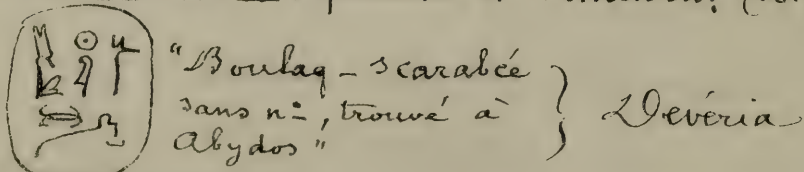 "Boulaq - scarabée
sans nº, trouvé à
Abydos"
Devéria